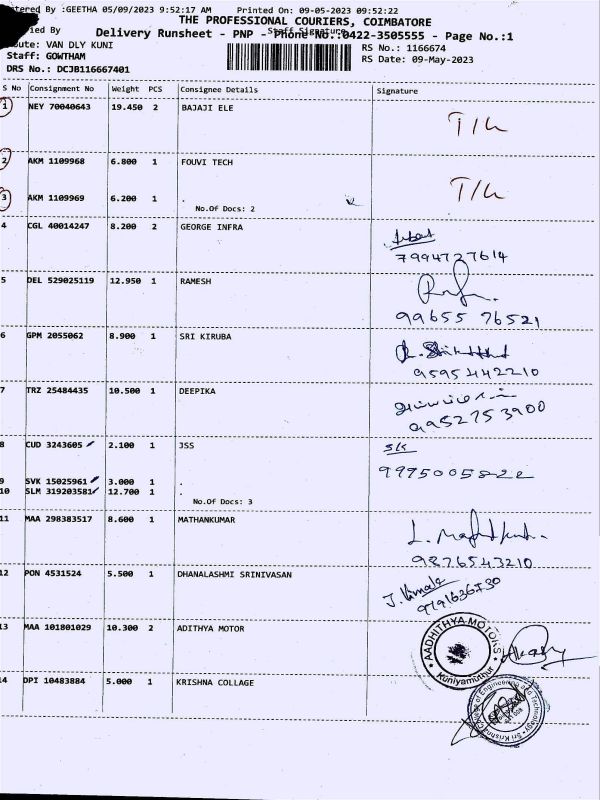 tered By :GEETHA 05/09/2023 9:52:17 AM Printed On: 09-05-2023 09:52:22
THE PROFESSIONAL COURIERS, COIMBATORE
ied By Delivery Runsheet - PNP - Phone No.:0422-3505555 - Page No.:1
Staff Signature
oute: VAN DLY KUNI RS No.: 1166674
Staff: GOWTHAM RS Date: 09-May-2023
DRS No.: DCJB116667401
S No Consignment No Weight PCS Consignee Details Signature
1 NEY 70040643 19.450 2 BAJAJI ELE T/L
2 AKM 1109968 6.800 1 FOUVI TECH
3 AKM 1109969 6.200 1 . T/L
No.Of Docs: 2
4 CGL 40014247 8.200 2 GEORGE INFRA
7994727614
5 DEL 529025119 12.950 1 RAMESH
99655 76521
6 GPM 2055062 8.900 1 SRI KIRUBA
9595442210
7 TRZ 25484435 10.500 1 DEEPIKA
9952753900
8 CUD 3243605 2.100 1 JSS SK
9 SVK 15025961 3.000 1 . 9975005822
10 SLM 319203581 12.700 1 .
No.Of Docs: 3
11 MAA 298383517 8.600 1 MATHANKUMAR
9876543210
12 PON 4531524 5.500 1 DHANALASHMI SRINIVASAN J. Vimala
9791636730
13 MAA 101801029 10.300 2 ADITHYA MOTOR AADHITHYA MOTORS
Kuniyamuthur
14 DPI 10483884 5.000 1 KRISHNA COLLAGE
Sri Krishna College of Engineering and Technology